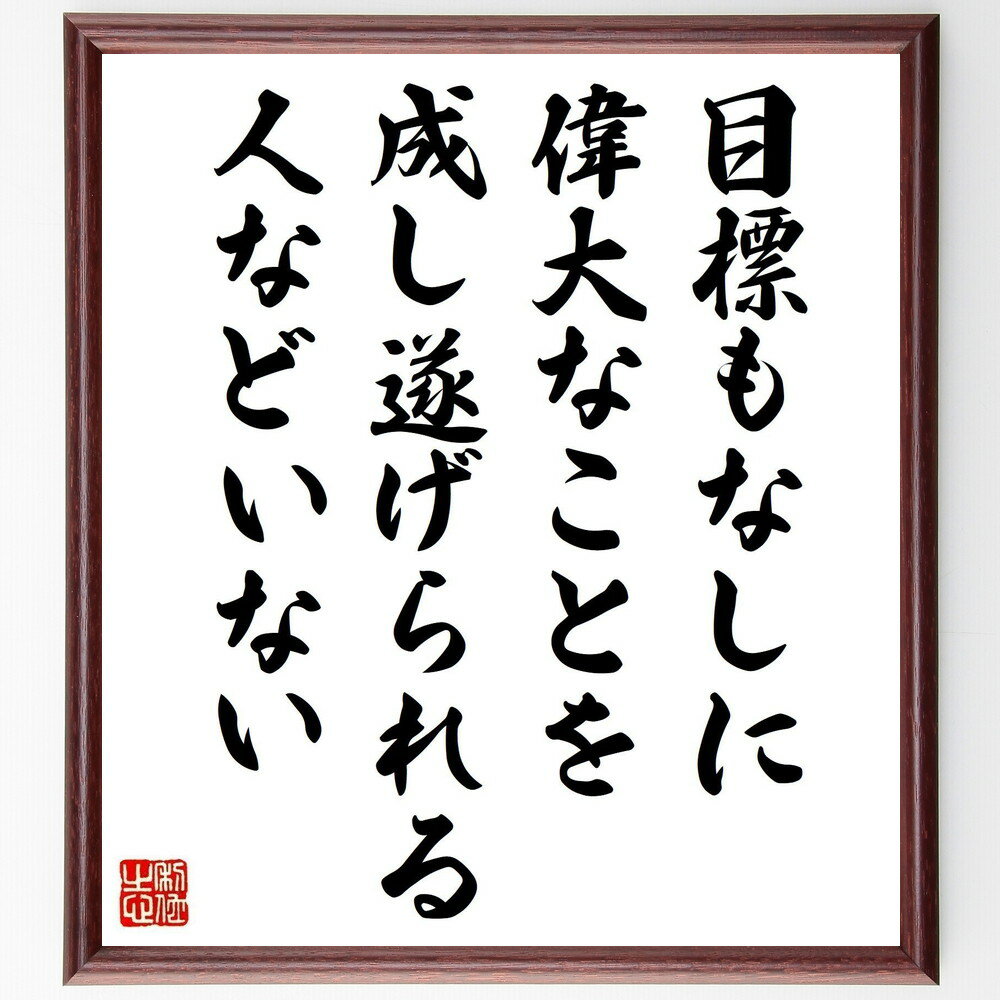 目標もなしに
偉大なことを
成し遂げられる
人などいない